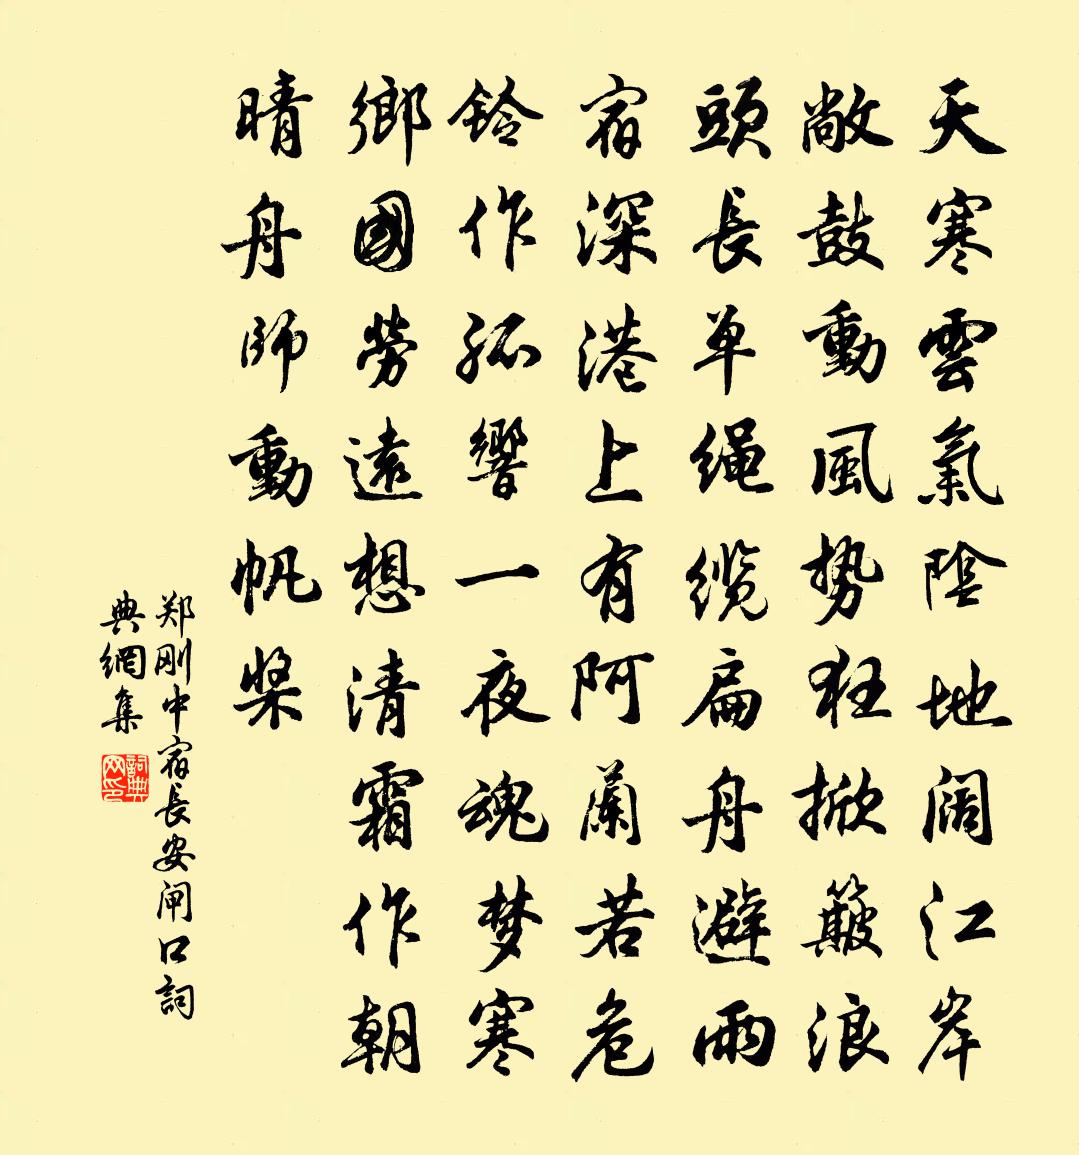 天寒雲氣陰地阔江岸
敞鼓動風势狂掀簸浪
頭長草绳缆扁舟避雨
宿深港上有阿蘭若危
鈴作孤響一夜魂梦寒
鄉國勞遠想清霜作朝
晴舟師動帆桨
郑刚中宿長安闸口詞
典網集
詞典网印